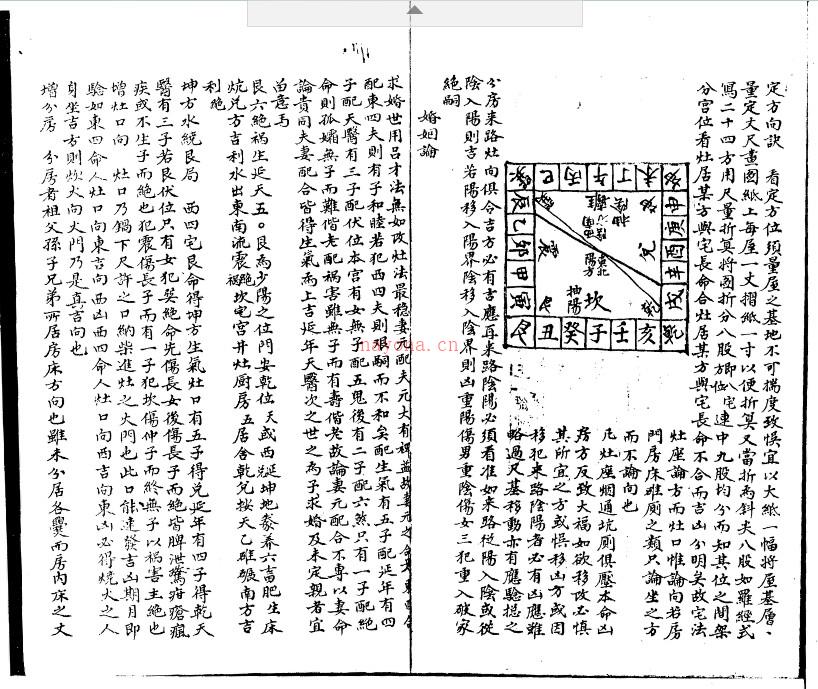 定方向訣　看定方位須量屋之基地不可揣度致悞宜以大紙一幅將屋基層〻
量定丈尺畫圖紙上每屋一丈摺紙一寸以便折算又當折為斜夾八股如羅經式
寫二十四方用尺量折算將圖折分八股即八宅方位連中九股均分而知其位之閒架
分宮位看灶居某方與宅長命合灶居某方與宅長命不合而吉凶分明矣故宅法
灶座論方而灶口惟論向若房
門房床碓厠之類只論坐之方
而不論向也
凡灶座烟通坑厠俱壓本命凶
房方反致大福如欲移改必慎
其所宜之方或悞移凶方或因
移犯來路陰陽者必有凶應雖
略過尺基移動亦有應驗捴之
巳 丙 午 丁 未 坤
申 酉 辛 戌 乾
亥 壬 子 癸 丑 艮
寅 甲 卯 乙 辰
兌
坎
抽陽
分房來路灶向俱合吉方必有吉應再來路陰陽必須看准如來路從陽入陰或從
陰入陽則吉若陽移入陽界陰移入陰界則凶重陽傷男重陰傷女三犯重入破家
絕嗣
婚姻論
求婚世用吕才法無如改灶法最穩妻元配夫元大有裨益故妻元之命是東四命
配東四夫則有子和睦若犯西四夫則艮嗣而不和矣配生氣有五子配延年有四
子配天醫有三子配伏位本宮有女無子配五鬼後有二子配六煞只有一子配絕
命則孤孀無子而難偕老配禍害雖無子而有壽偕老故論妻元配合不專以妻命
論貴同夫妻配合皆得生氣為上吉延年天醫次之世之為子求婚及未定親者宜
苗意焉
艮六絕禍生延天五。艮為少陽之位門安乾位天或西兌延坤地豢养六畜肥生床
炕兌方吉利水出東南流震禍絕坎宅宮井灶厨房五居舍乾兌按天乙碓碾南方吉
利絕
坤方水統艮局　西四宅艮命得坤方生氣灶口有五子得兌延年有四子得乾天
醫有三子若艮伏位只有女犯巽絕命先傷長女後傷長子而絕皆脾泄驚疳瘡瘋
疾或不生子而絕也犯震傷長子而有一子犯坎傷仲子而終無子以禍害主絕也
增灶口向　灶口乃鍋下尺許之口納柴進灶之火門也此口能速發吉凶期月即
驗如東四命人灶口向東吉向西凶西四命人灶口向西吉向東凶必得燒火之人
身坐吉方則炊火向火門乃是真吉向也
增分房　分房者祖父孫子兄弟所居房床方向也雖未分居各爨而房內床之丈
nayona.cn